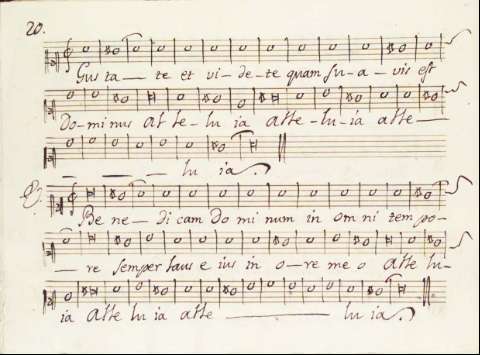 20.
Gus ta — te et vi - de - te quam su - a - vis est
Do - mi nus al le - lu ia alle - lu - ia alle —
— — — — lu ia.
Be ne — di cam Do mi num in om ni tem po -
— re semper laus e ius in o — re me o alle lu -
ia alle lu ia alle — lu ia.